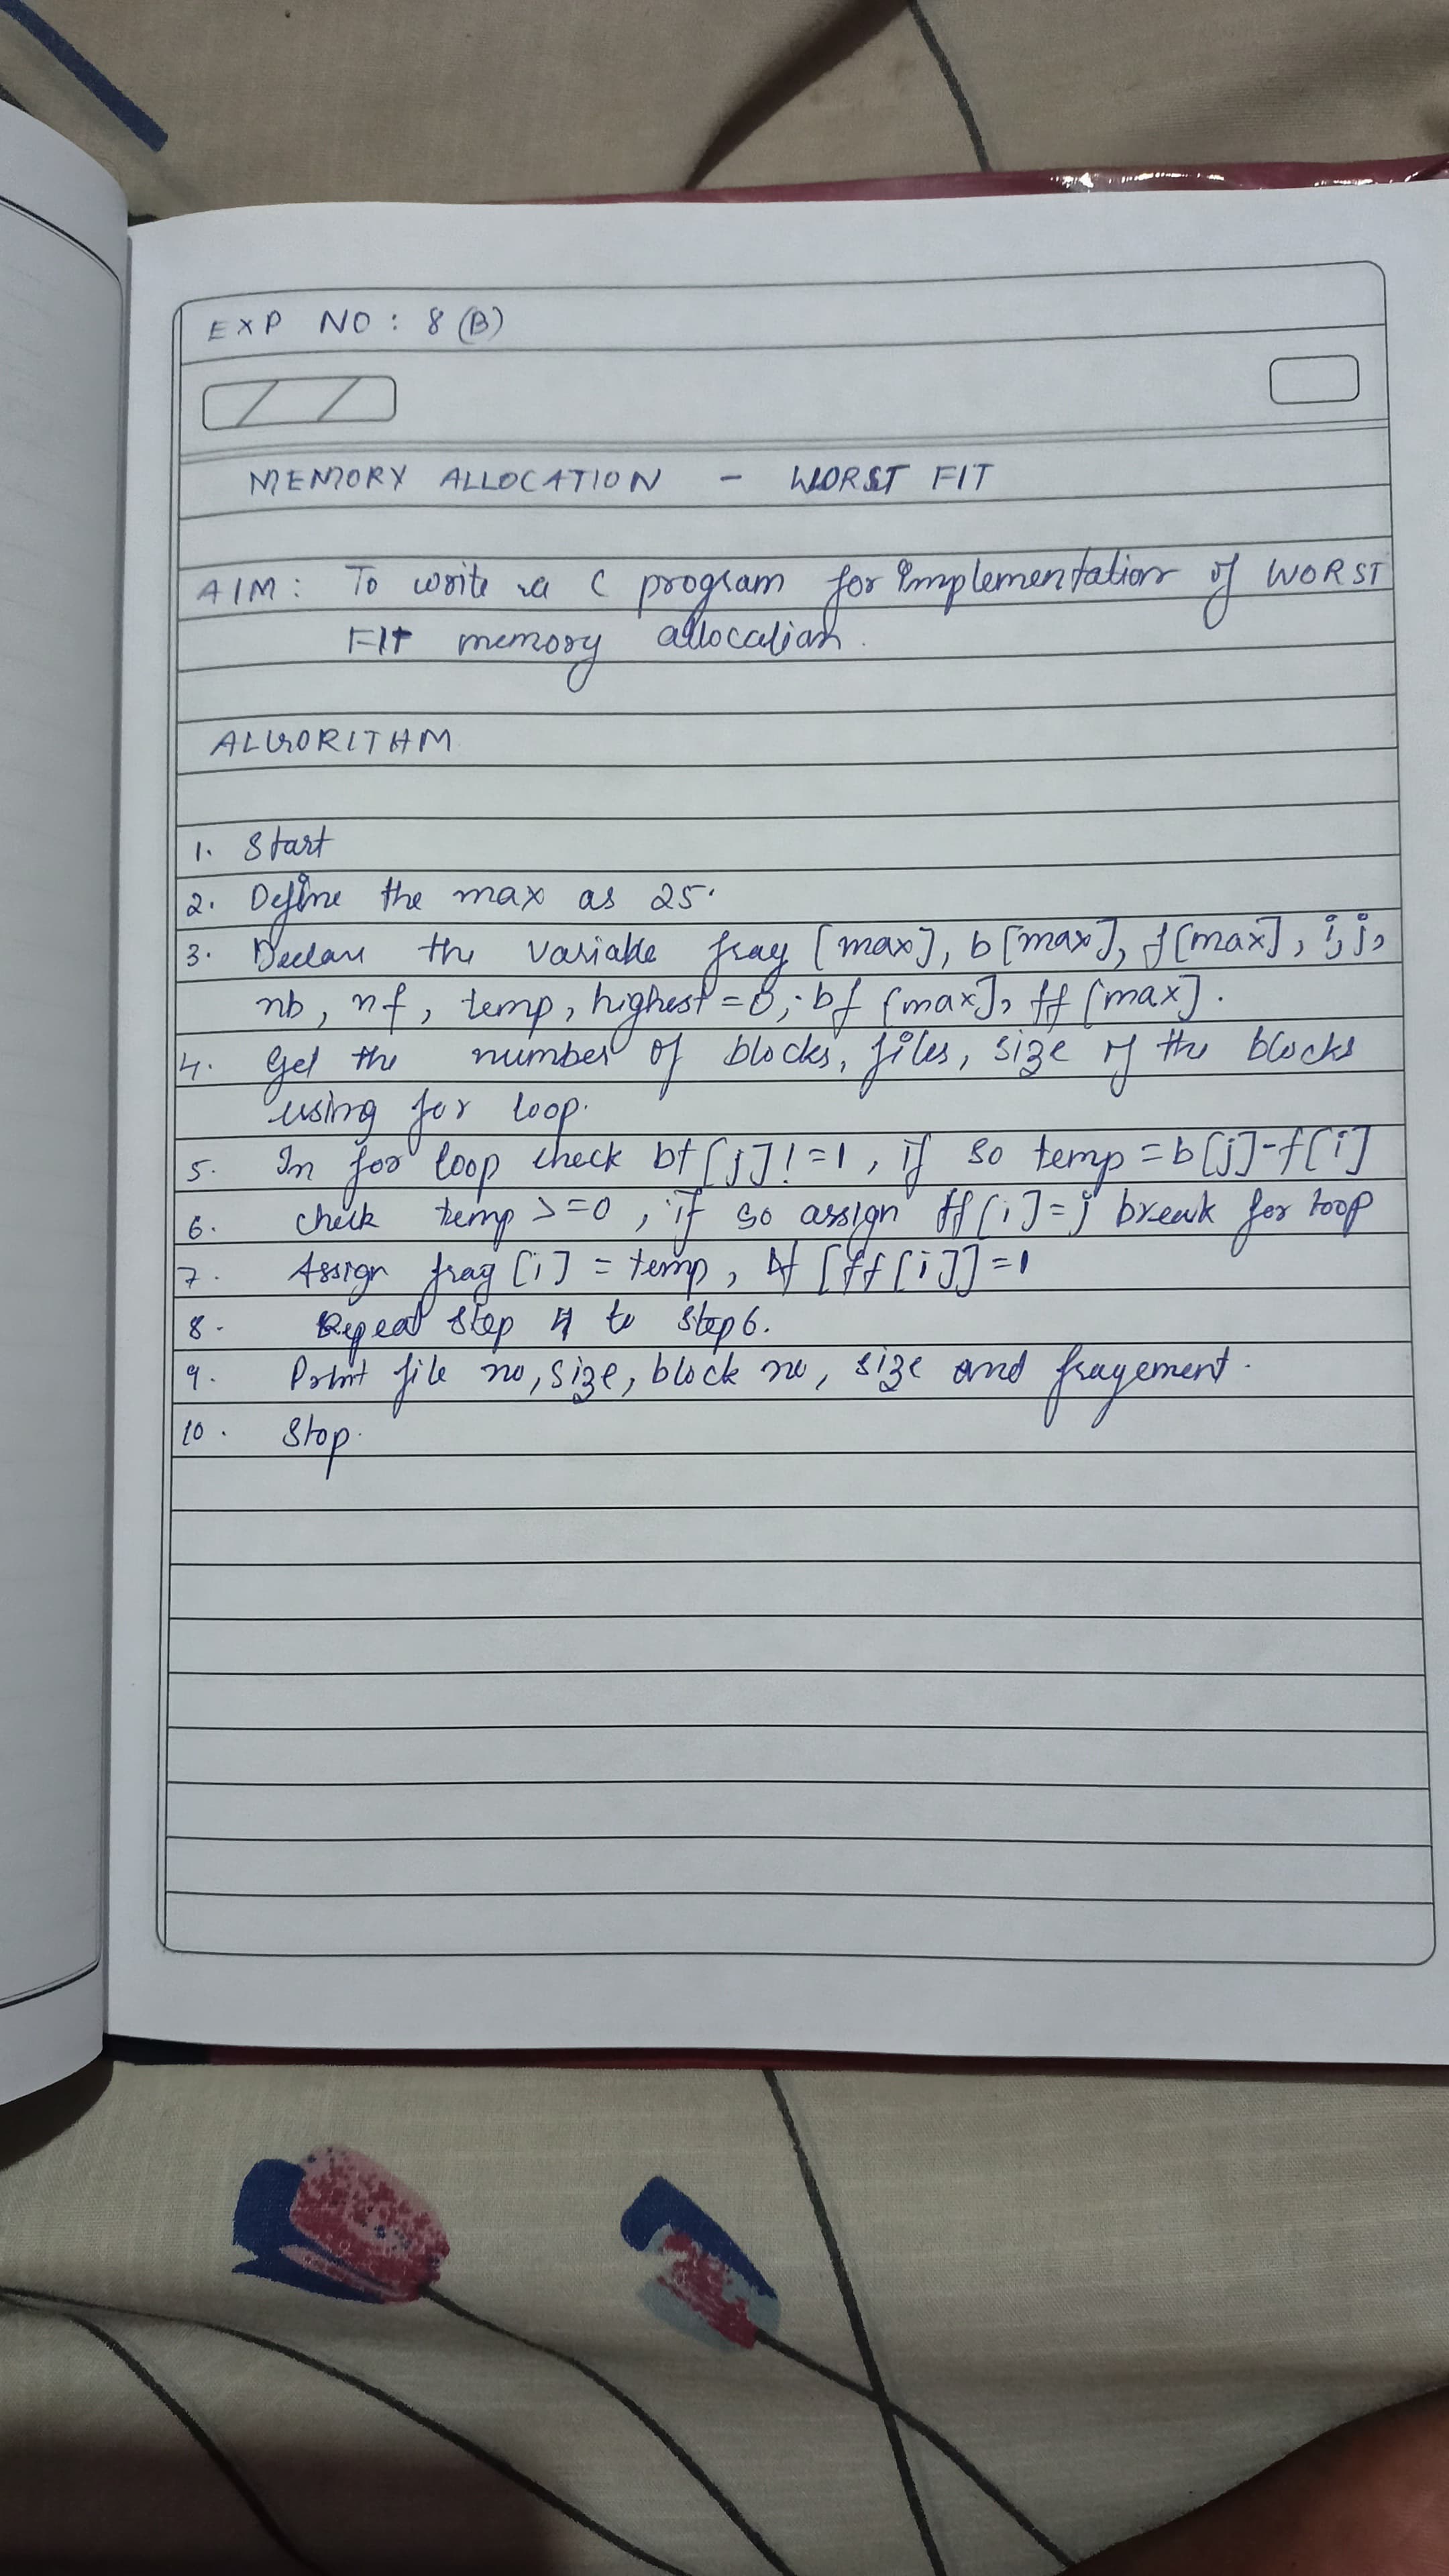 EXP NO: 8 (B)
MEMORY ALLOCATION - WORST FIT
AIM: To write a C program for Implementation of WORST
FIT memory allocation.
ALGORITHM
1. Start
2. Define the max as 25.
3. Declare the variable frag [max], b[max], f[max], i, j,
nb, nf, temp, highest = 0, bf [max], ff [max].
4. Get the number of blocks, files, size of the blocks
using for loop.
5. In for loop check bf [j] != 1, if so temp = b[j]-f[i]
6. check temp >= 0, if so assign ff[i] = j break for loop
7. Assign frag [i] = temp, bf [ff[i]] = 1
8. Repeat step 4 to step 6.
9. Print file no, size, block no, size and fragement.
10. Stop.